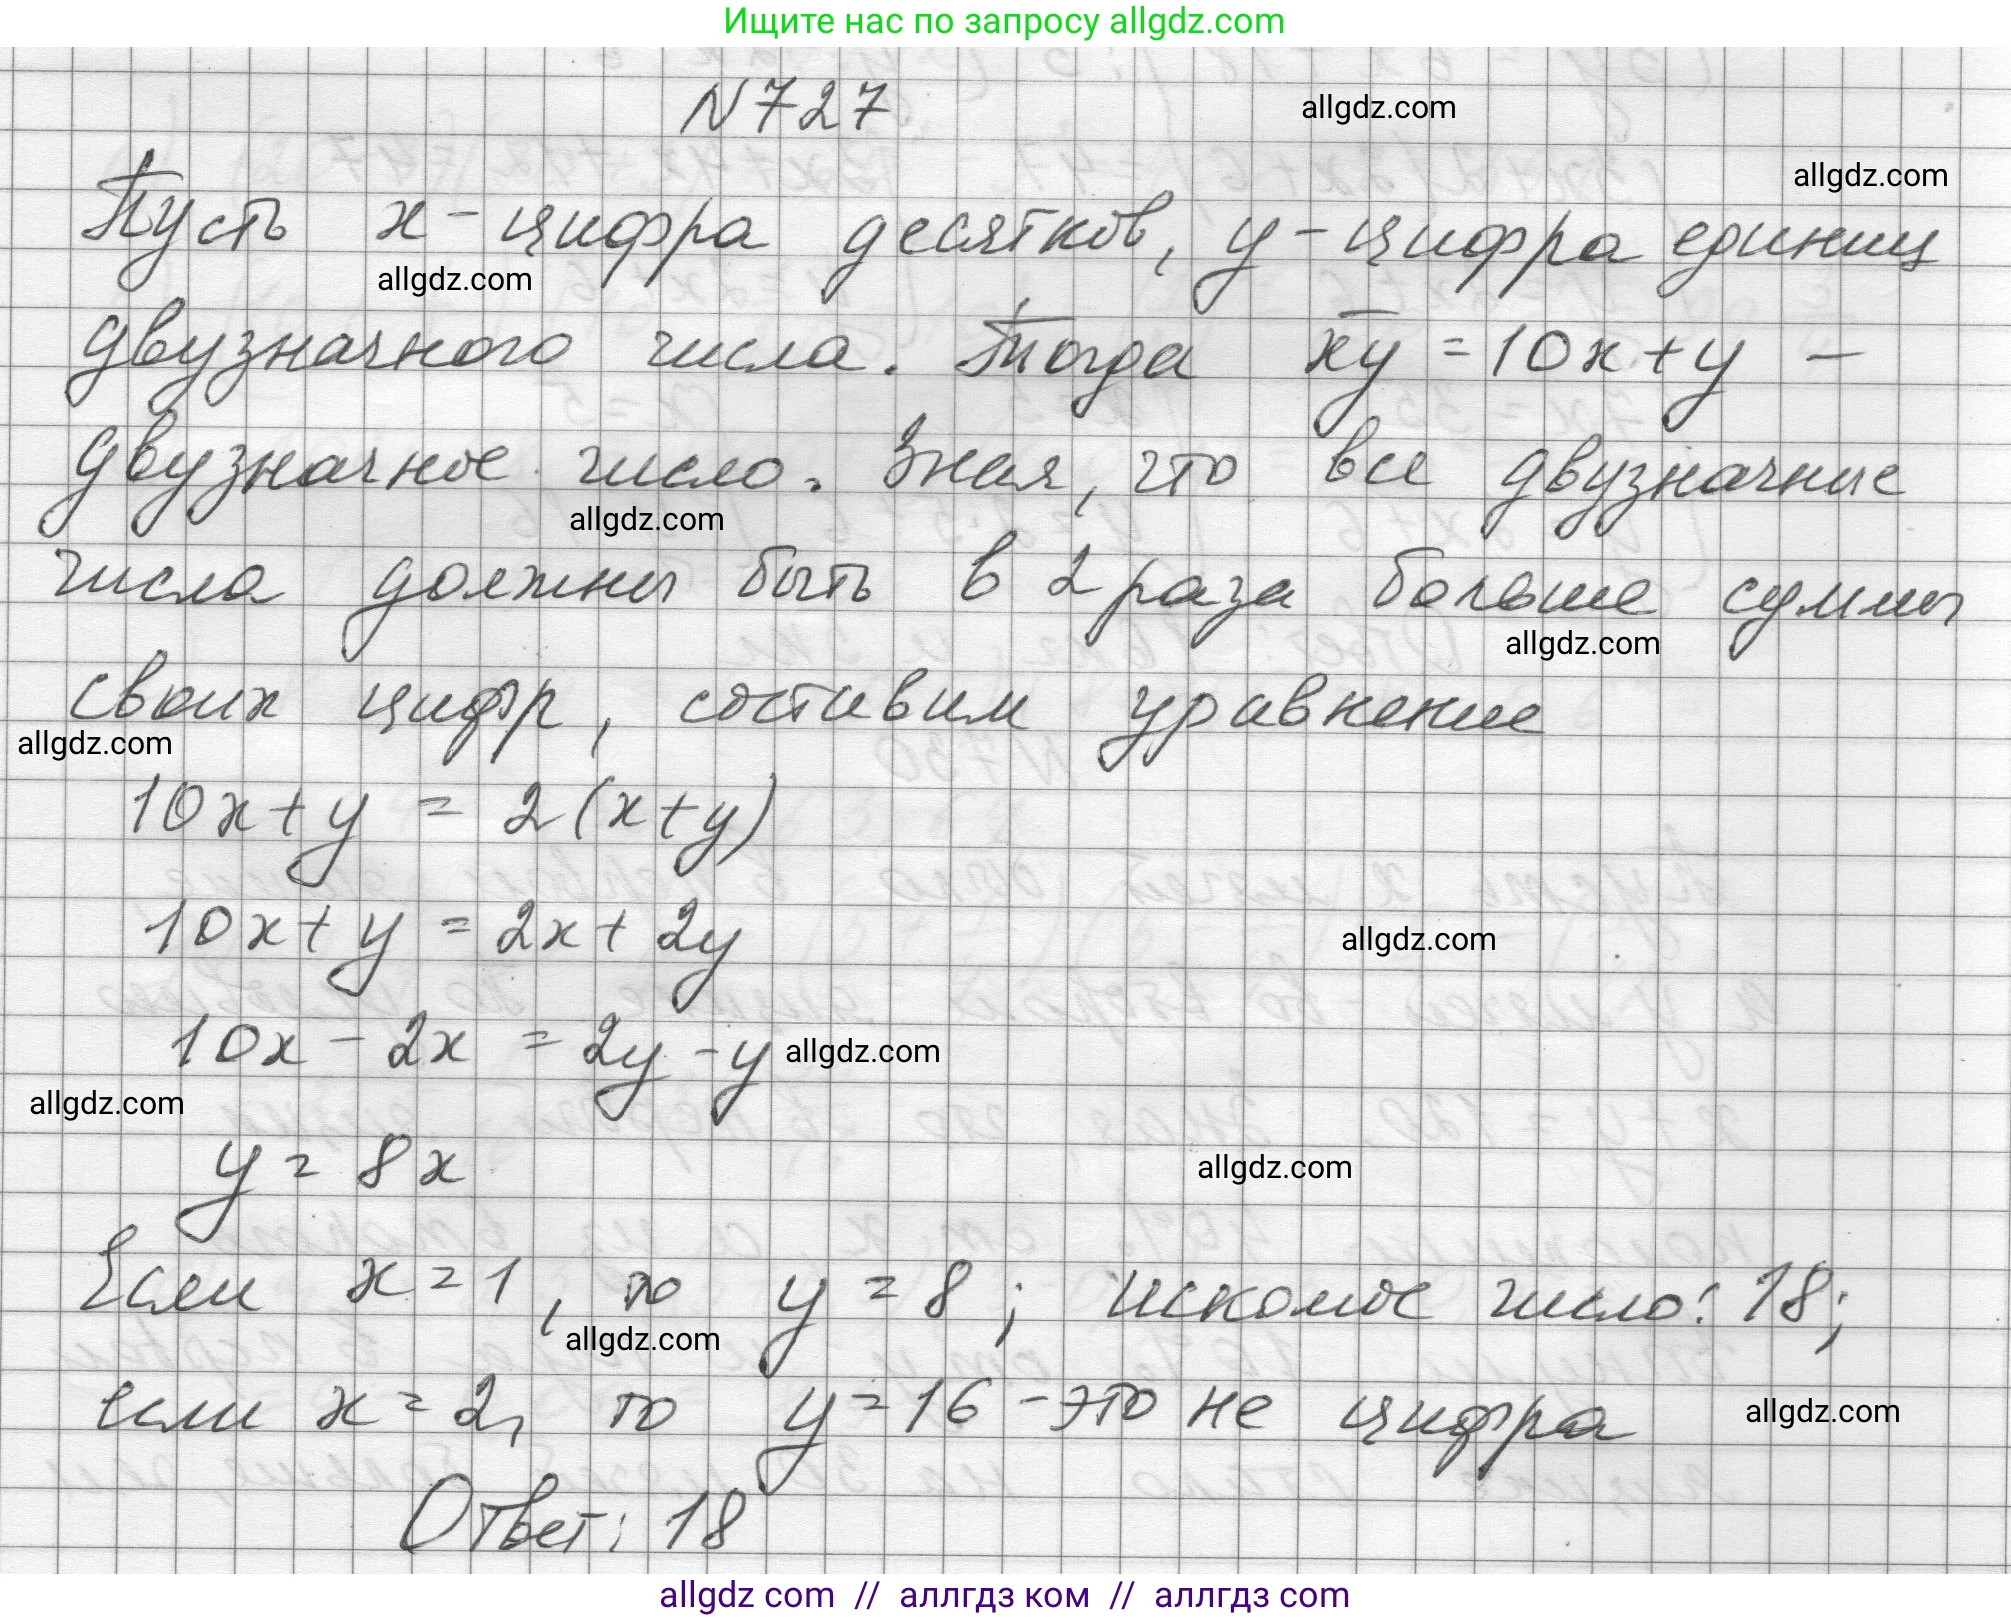 Ищите нас по запросу allgdz.com
N 727
allgdz.com
allgdz.com
Пусть x - цифра десятков, y - цифра единиц
allgdz.com
двузначного числа. Тогда x̅y̅ = 10x + y —
двузначное число. Зная, что все двузначные
allgdz.com
числа должны быть в 2 раза больше суммы
allgdz.com
своих цифр, составим уравнение
allgdz.com
10x + y = 2(x + y)
10x + y = 2x + 2y
allgdz.com
10x - 2x = 2y - y
allgdz.com
allgdz.com
y = 8x
allgdz.com
Если x = 1, то y = 8; искомое число: 18;
allgdz.com
если x = 2, то y = 16 - это не цифра
allgdz.com
Ответ: 18
allgdz com // аллгдз ком // аллгдз com